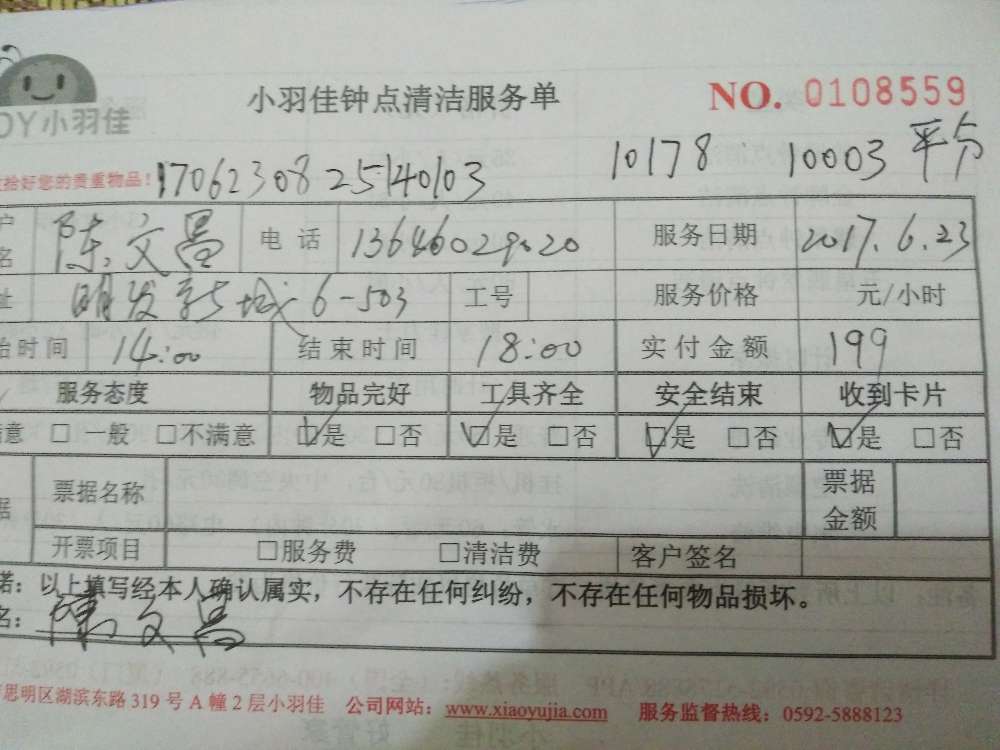 小羽佳钟点清洁服务单 NO. 0108559
DY小羽佳
拾好您的贵重物品! 1706230825140103 10178 10003 平分
户名 陈文昌 电话 13646029020 服务日期 2017.6.23
址 明发新城 6-503 工号 服务价格 元/小时
始时间 14:00 结束时间 18:00 实付金额 199
服务态度 物品完好 工具齐全 安全结束 收到卡片
满意 □一般 □不满意 ☑是 □否 ☑是 □否 ☑是 □否 ☑是 □否
据 票据名称 票据金额
开票项目 □服务费 □清洁费 客户签名
诺：以上填写经本人确认属实，不存在任何纠纷，不存在任何物品损坏。
名：陈文昌
思明区湖滨东路 319 号 A 幢 2 层小羽佳 公司网站：www.xiaoyujia.com 服务监督热线：0592-5888123